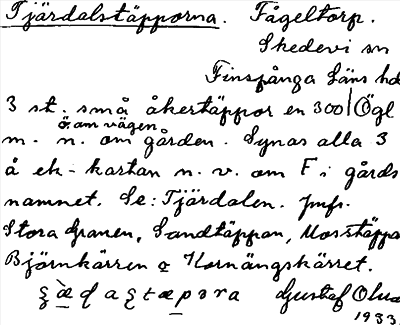 Tjärdalstäpporna. Fågeltorp.
Skedevi sn
Finspånga läns hd
3 st. små åkertäppor en 300 Ögl
ö. om vägen
m. n. om gården. Synas alla 3
å ek-kartan n. v. om F i gårds
namnet. Se: Tjärdalen. Jmfr.
Stora Granen, Sandtäppan, Mosstäppa
Björnkärren o Kornängskärret.
Gustaf
1933